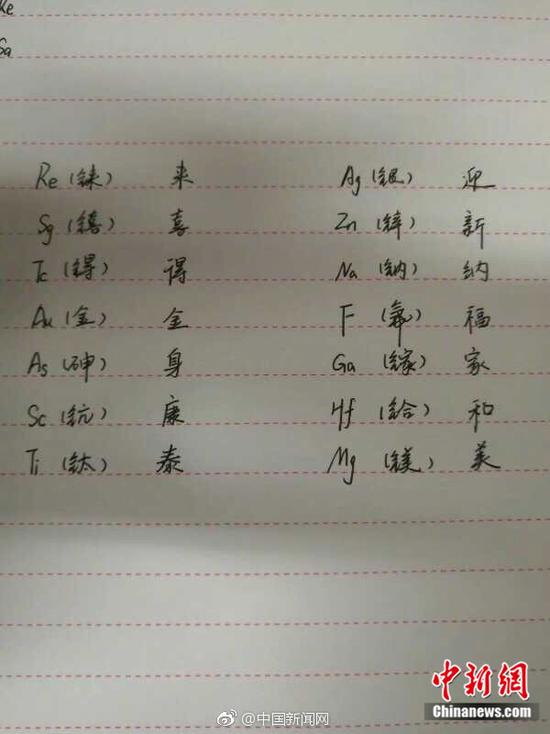 Re (铼) 来 Ag (银) 迎
Sg (𬭳) 喜 Zn (锌) 新
Tc (锝) 得 Na (钠) 纳
Au (金) 金 F (氟) 福
As (砷) 身 Ga (镓) 家
Sc (钪) 康 Hf (铪) 和
Ti (钛) 泰 Mg (镁) 美
中新网
Chinanews.com
@中国新闻网